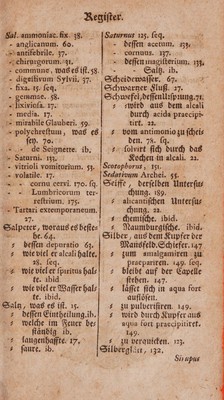 Register.
Sal. ammoniac. fix. 38.
- anglicanum. 60.
- antifebrile. 37.
- chirurgorum. 31.
- commune, was es ist. 58
- digestivum Sylvii. 37.
- fixa. 15. seq.
- gemmæ. 58.
- lixiviosa. 17.
- media. 17.
- mirabile Glauberi. 59.
- polychrestum, was es
sey. 70.
- - de Seignette. ib.
- Saturni. 151.
- vitrioli vomitorium. 51.
- volatile. 17.
- - cornu cervi. 170. sq.
- - Lumbricorum ter-
restrium. 175.
- Tartar. extemporaneum.
27.
Salpeter, woraus es beste-
he. 64.
- dessen depuratio 63.
- wie viel er alcali halte.
28. seq.
- wie viel er spiritus hal-
te ibid
- wie viel er Wasser hal-
te. ibid.
Saltz, was es ist. 15.
- dessen Eintheilung. ib.
- welche im Feuer be-
ständig ib.
- laugenhaffte. 17.
- saure. ib.
Saturnus 125. seq.
- dessen acetum. 153.
- - cornuus. 127.
- dessen magisterium. 155.
- - Saltz. ib.
Scheidewasser. 67.
Schwartzer Fluß. 27.
Schwefel, dessen Ursprung. 71.
- wird aus dem alcali
durch acida praecipi-
tirt. 22.
- vom antimonio zu schei-
den. 78. sq.
- solvirt sich durch das
Kochen in alcali. 22.
Scotophorus. 15.
Sedativum Archei. 55.
Seiffe, derselben Untersu-
chung. 189.
- alicantischen Untersu-
chung. 22.
- chemische. ibid.
- Naumburgische. ibid.
Silber, aus dem Kupfer der
Mansfeld. Schiefer. 147
- zum amalgamiren zu
praecipitiren. 149. seq.
- bleibt auf der Capelle
stehen. 147.
- lässet sich in aqua fort
auflösen.
- zu pulverisiren. 149.
- wird durch Kupfer aus
aqua fort praecipitiret.
149.
- zu verquicken. 123.
Silberglätt, 132.
Sirupus